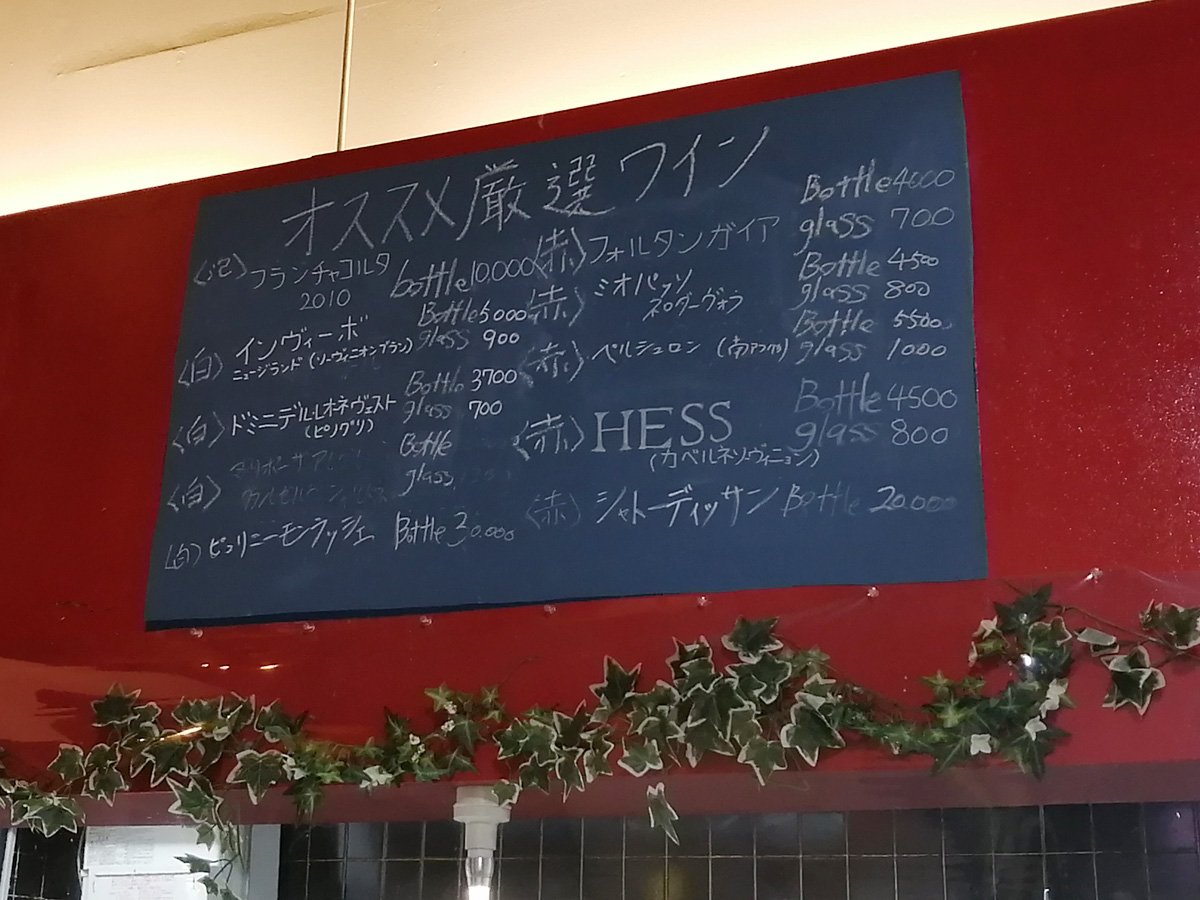 オススメ厳選ワイン
〈泡〉フランチャコルタ bottle 10,000
2010
〈白〉インヴィーボ Bottle 5000
ニュージランド(ソーヴィニオンブラン) glass 900
〈白〉ドミニデル・レオネヴェスト Bottle 3700
(ピノグリ) glass 700
〈白〉 Bottle
glass
〈白〉ピュリニーモンラッシェ Bottle 30.000
〈赤〉フォルタンガイア Bottle 4000
glass 700
〈赤〉ミオパッソ Bottle 4500
ネロダーヴォラ glass 800
〈赤〉ペルシュロン (南アフリカ) Bottle 5500
glass 1000
〈赤〉HESS Bottle 4500
(カベルネソーヴィニョン) glass 800
〈赤〉シャトーディッサン Bottle 20.000